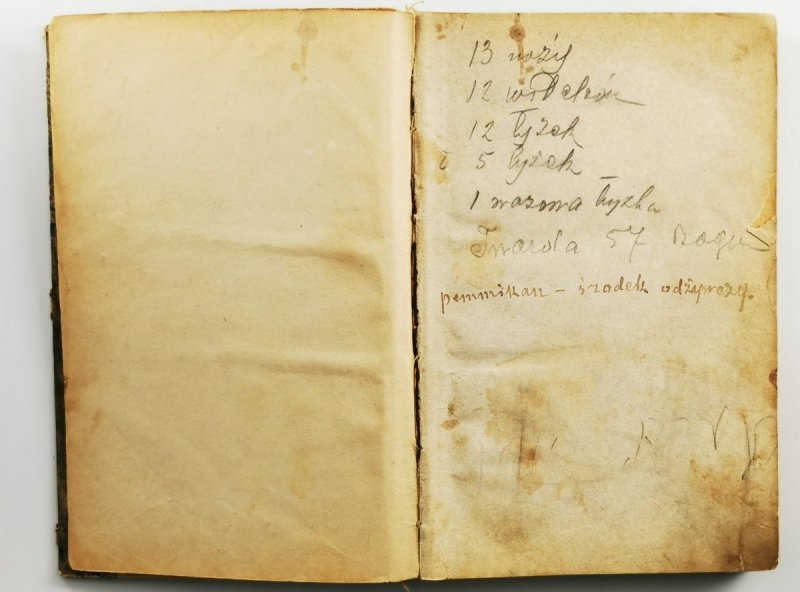 13 noży
12 widelców
12 łyżek
i 5 łyżek
1 wazowa łyżka
Twarda 57
pemmikan – środek odżywczy.